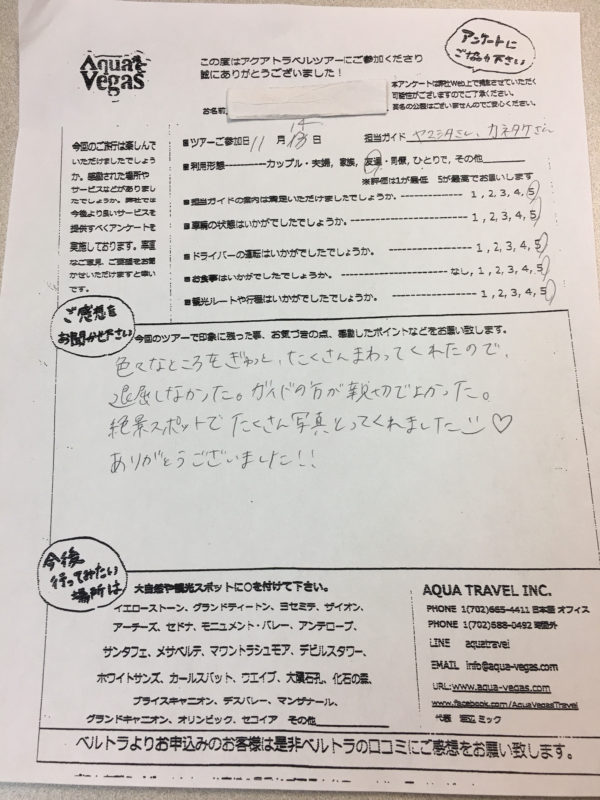 Aqua
Vegas
この度はアクアトラベルツアーにご参加くださり
誠にありがとうございました！
アンケートに
ご協力下さい
本アンケートは弊社Web上で掲載させていただく
可能性がございますのでご了承ください。
実名の公表はございませんのでご安心ください。
お名前
今回のご旅行は楽しんで
いただけましたでしょう
か。感動された場所や
サービスなどがありまし
たでしょうか。弊社では
今後より良いサービスを
提供すべくアンケートを
実施しております。率直
なご意見、ご要望をお聞
かせいただけますと幸い
です。
■ツアーご参加日 11 月 14 日 担当ガイド ヤマシタさん、カネタケさん
■利用形態-----------カップル・夫婦, 家族, 友達・同僚, ひとりで, その他
※評価は1が最低 5が最高でお願いします
■担当ガイドの案内は満足いただけましたでしょうか。---------------- 1 , 2 , 3 , 4 , 5
■車輌の状態はいかがでしたでしょうか。---------------------------- 1 , 2 , 3 , 4 , 5
■ドライバーの運転はいかがでしたでしょうか。---------------------- 1 , 2 , 3 , 4 , 5
■お食事はいかがでしたでしょうか。------------------------- なし, 1 , 2 , 3 , 4 , 5
■観光ルートや行程はいかがでしたでしょうか。---------------------- 1 , 2 , 3 , 4 , 5
ご感想を
お聞かせ下さい
今回のツアーで印象に残った事、お気づきの点、感動したポイントなどをお願い致します。
色々なところをぎゅっと、たくさんまわってくれたので、
退屈しなかった。ガイドの方が親切でよかった。
絶景スポットでたくさん写真とってくれました♡
ありがとうございました!!
今後
行ってみたい
場所は
大自然や観光スポットに○を付けて下さい。
イエローストーン、グランドティートン、ヨセミテ、ザイオン、
アーチーズ、セドナ、モニュメント・バレー、アンテロープ、
サンタフェ、メサベルデ、マウントラシュモア、デビルスタワー、
ホワイトサンズ、カールスバット、ウエイブ、大隕石孔、化石の森、
ブライスキャニオン、デスバレー、マンザナール、
グランドキャニオン、オリンピック、セコイア その他
AQUA TRAVEL INC.
PHONE 1(702)665-4411 日本語 オフィス
PHONE 1(702)588-0492 時間外
LINE aquatravel
EMAIL info@aqua-vegas.com
URL:www.aqua-vegas.com
www.facebook.com/AquaVegasTravel
代表 ミック
ベルトラよりお申込みのお客様は是非ベルトラの口コミにご感想をお願い致します。